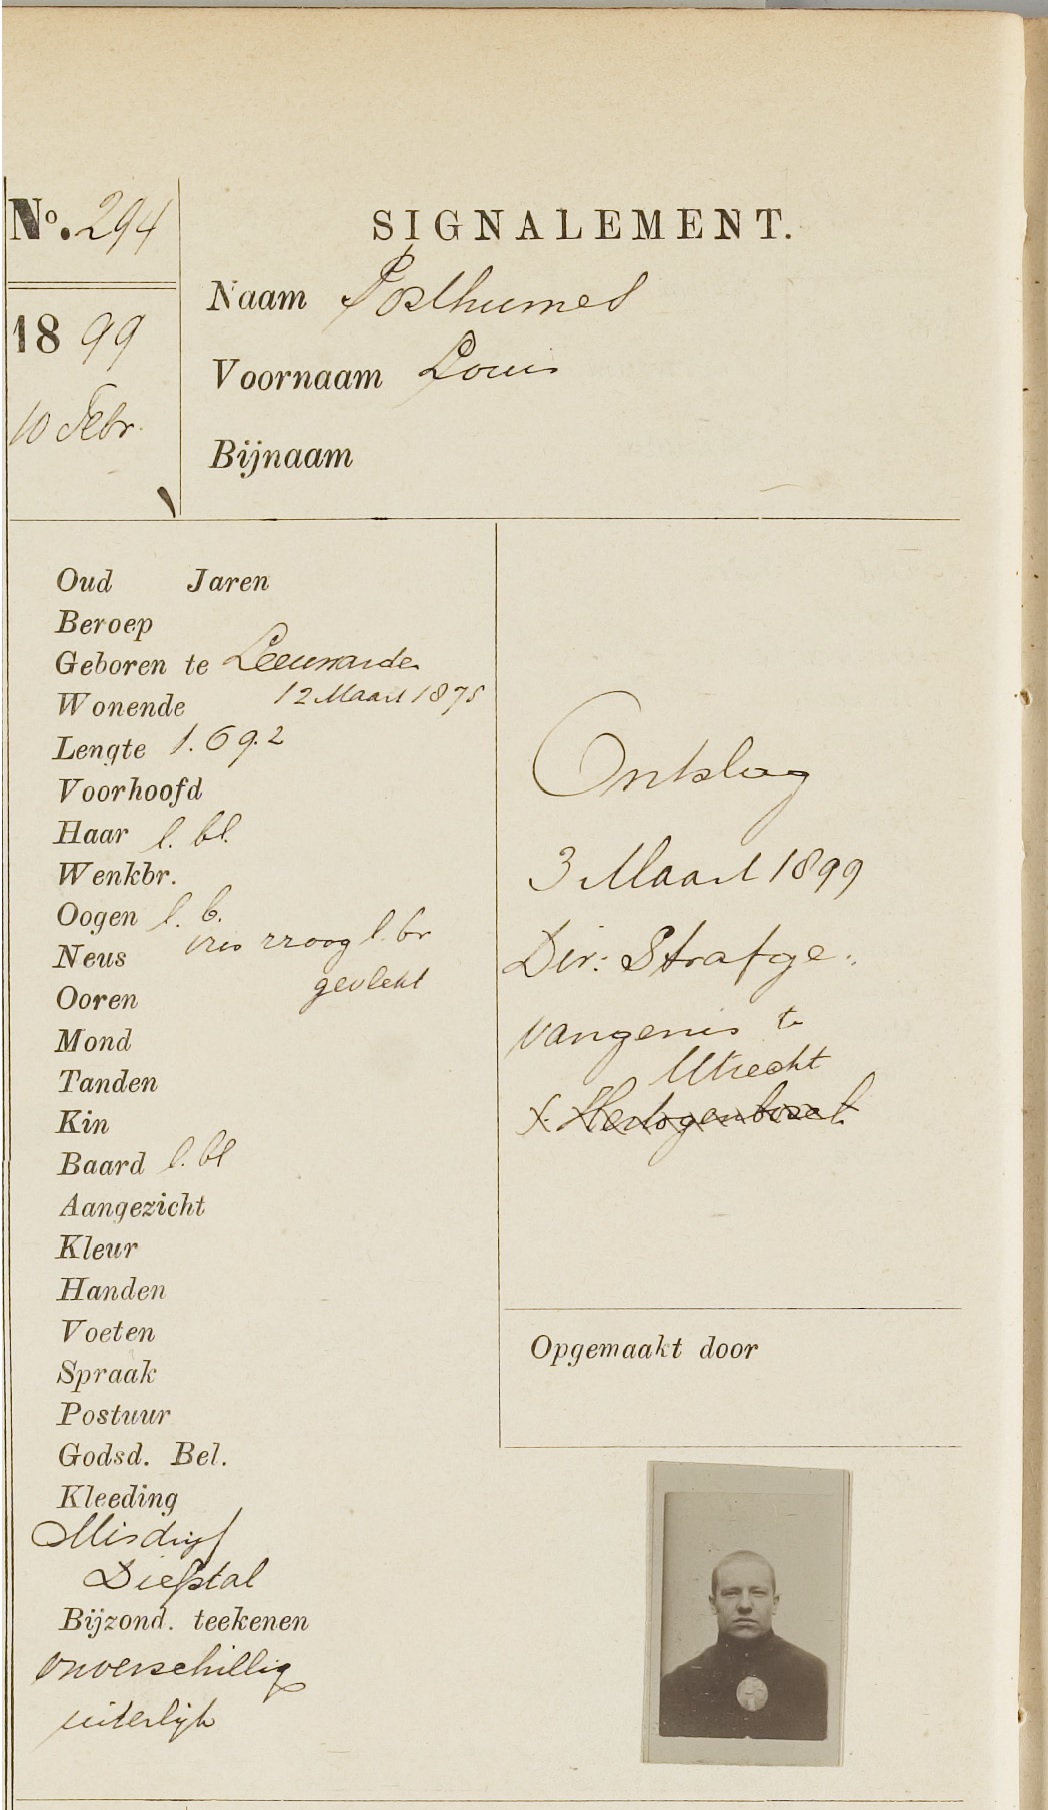 No. 294
1899
10 Febr.
SIGNALEMENT.
Naam Posthumes
Voornaam Louis
Bijnaam
Oud Jaren
Beroep
Geboren te Leeuwarden
12 Maart 1875
Wonende
Lengte 1.692
Voorhoofd
Haar l. bl.
Wenkbr.
Oogen l. b.
iris l. br
Neus
gevlekt
Ooren
Mond
Tanden
Kin
Baard l. bl
Aangezicht
Kleur
Handen
Voeten
Spraak
Postuur
Godsd. Bel.
Kleeding
Misdrijf
Diefstal
Bijzond. teekenen
onverschillig
uiterlijk
Ontslag
3 Maart 1899
Dir: Strafge:
vangenis te
Utrecht
s. Hertogenbosch
Opgemaakt door